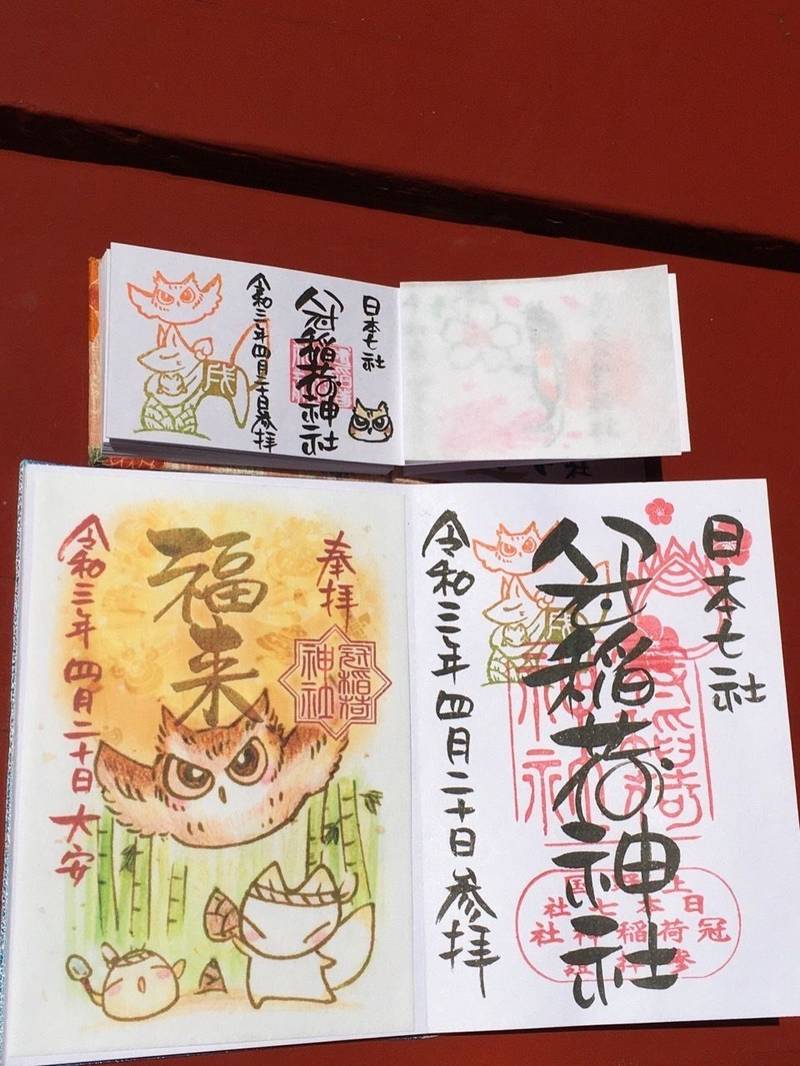 日本七社
冠稲荷神社
令和三年四月二十日参拝
奉拝
冠稲荷
神社
福来
令和三年四月二十日大安
日本七社
冠稲荷神社
令和三年四月二十日参拝
日本七社
冠稲荷神社